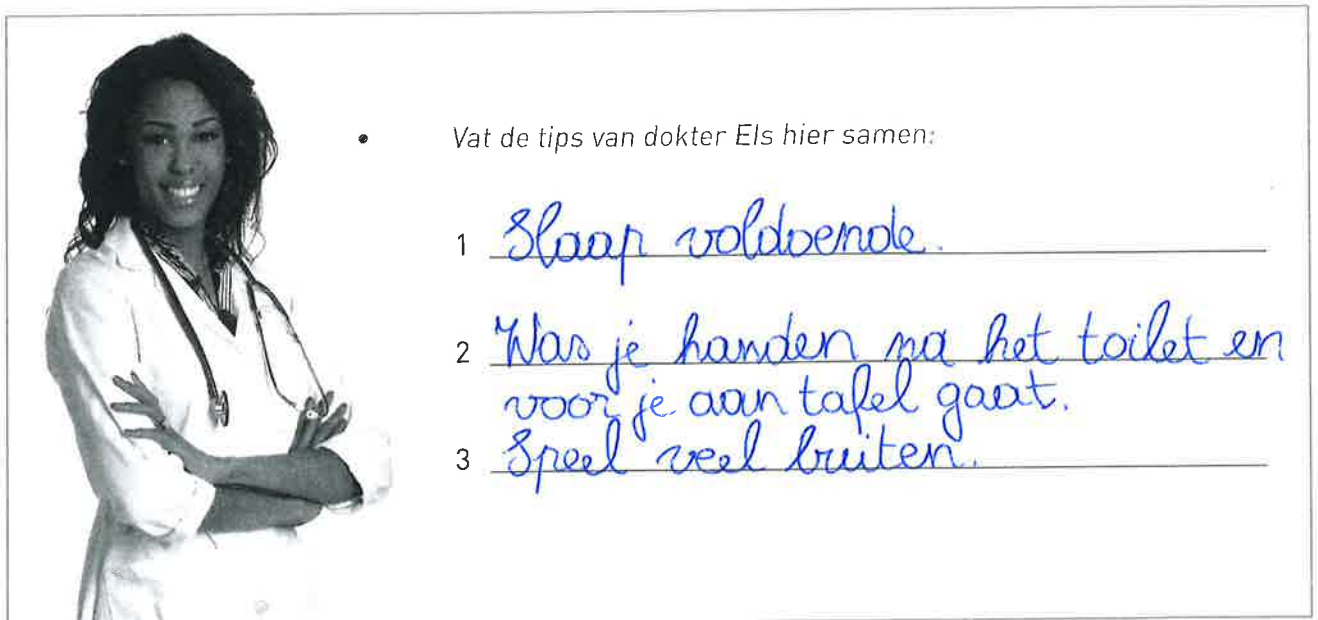 • Vat de tips van dokter Els hier samen:
1 Slaap voldoende.
2 Was je handen na het toilet en
voor je aan tafel gaat.
3 Speel veel buiten.